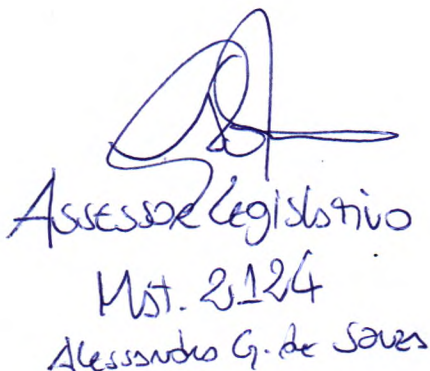 Assessor Legislativo
Mat. 2.124
Alessandro G. de Souza